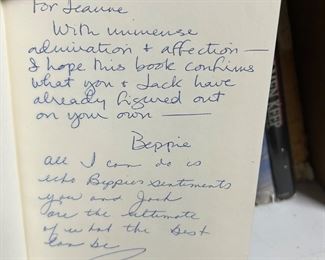 For Jeanne
With immense
admiration & affection —
I hope this book confirms
what you & Jack have
already figured out
on your own —
Beppie
all I can do is
echo Beppies sentiments
you and Jack
are the ultimate
of what the best
can be